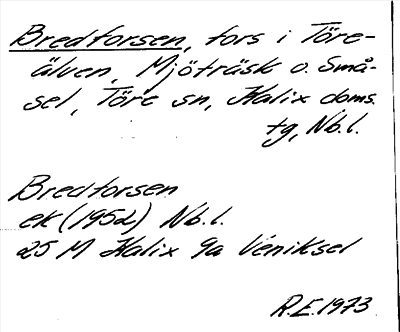 Bredforsen, fors i Töre-
älven, Mjöträsk o. Små-
sel, Töre sn, Kalix doms.
tg, Nb.l.
Bredforsen
ek (1952) Nb.l.
25 M Kalix 9a Véniksel
R.E. 1973